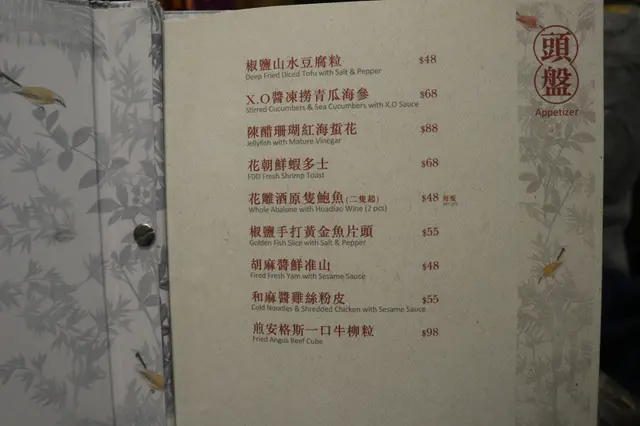 頭盤
Appetizer
椒鹽山水豆腐粒 $48
Deep Fried Diced Tofu with Salt & Pepper
X.O醬凍撈青瓜海參 $68
Stirred Cucumbers & Sea Cucumbers with X.O Sauce
陳醋珊瑚紅海蜇花 $88
Jellyfish with Mature Vinegar
花朝鮮蝦多士 $68
FDD Fresh Shrimp Toast
花雕酒原隻鮑魚(二隻起) $48
Whole Abalone with Huadiao Wine (2 pcs)
椒鹽手打黃金魚片頭 $55
Golden Fish Slice with Salt & Pepper
胡麻醬鮮准山 $48
Fired Fresh Yam with Sesame Sauce
和麻醬雞絲粉皮 $55
Cold Noodles & Shredded Chicken with Sesame Sauce
煎安格斯一口牛柳粒 $98
Fried Angus Beef Cube